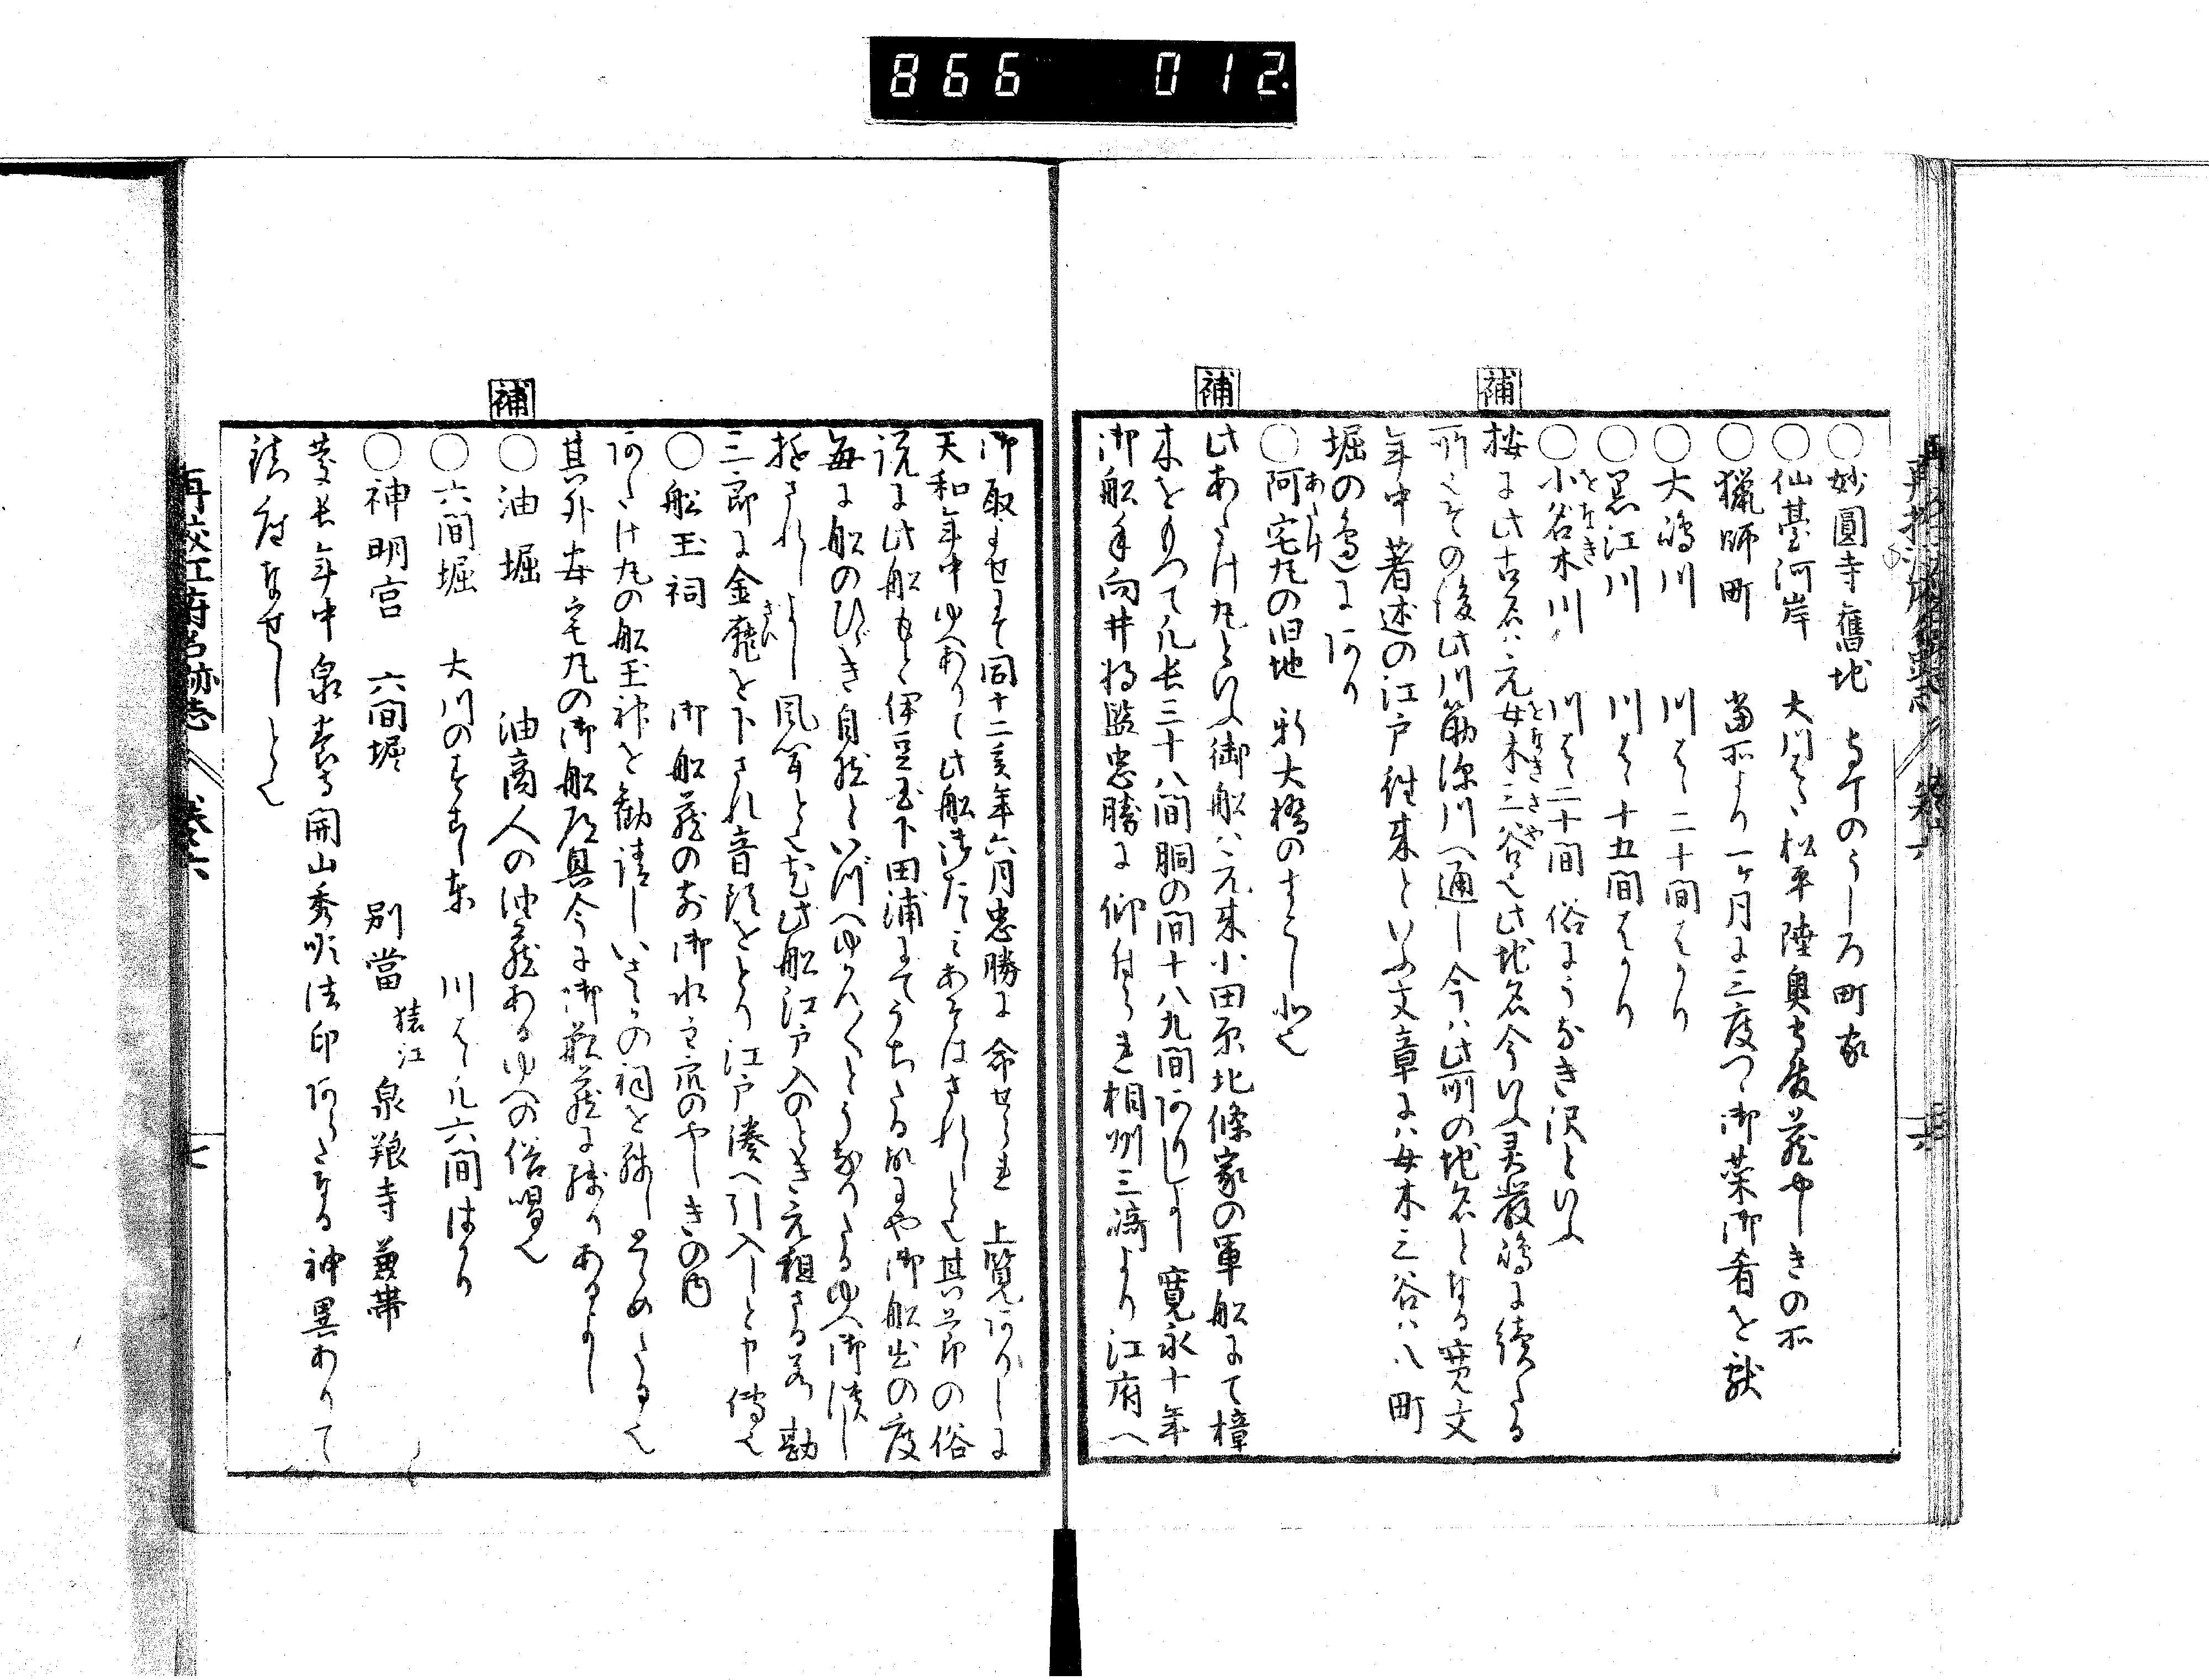 866 012
○妙圓寺舊地 寺町のうしろ町家
○仙臺河岸 大川はた松平陸奥守殿藏やしきの所
○獵師町 當所より一ケ月に三度つゝ御菜御肴を献
○大嶋川 川はゝ二十間はかり
○黒江川 川はゝ十五間はかり
○小谷木川 川はゝ二十間 俗にうなき沢といふ
をなき
補
按に此古名ハ元女木三谷也此地名今以具数嶋に續たる
をなきさや
所也その後此川筋深川へ通し今ハ此所の地名となる寛文
年中著述の江戸往来といふ文章にハ女木三谷ハ八町
堀の邊にあり
○阿宅丸の旧地 新大橋のすこし北也
あたけ
補
此あたけ丸といふ御船ハ元来小田原北條家の軍船にて樟
木をもつて凡長三十八間胴の間十八九間ありしよし寛永十年
御船手向井将監忠勝に仰付られ相州三﨑より江府へ
御取よせにて同十二亥年六月忠勝に命せられ 上覧ありしに
天和年中ゆへありて此船御たゝみあそはされしと也其節の俗
説に此船もと伊豆国下田浦にてうちたる故にや御船出の度
毎に船のひゞき自然といづへゆかんくとうなりたるゆへ御潰し
遊されしよし風聞と也尤此船江戸入のとき元祖さる若勘
三郎に金麾を下され音頭をとり江戸湊へ引入しと申傳也
さい
○船玉祠 御船藏の前御水主衆のやしきの内
あたけ丸の船玉神を勧請しいさゝかの祠を残しとゝめたる也
其外安宅丸の御船道具今に御船藏に残りあるよし
補
○油堀 油商人の油藏あるゆへの俗唱也
○六間堀 大川のすちより東 川はゝ凡六間はかり
○神明宮 六間堀 別當 猿江 泉養寺兼帯
慶長年中泉養寺開山秀順法印あらたなる神異ありて
鎮座なせしと也
再校江府名跡志 巻六 七